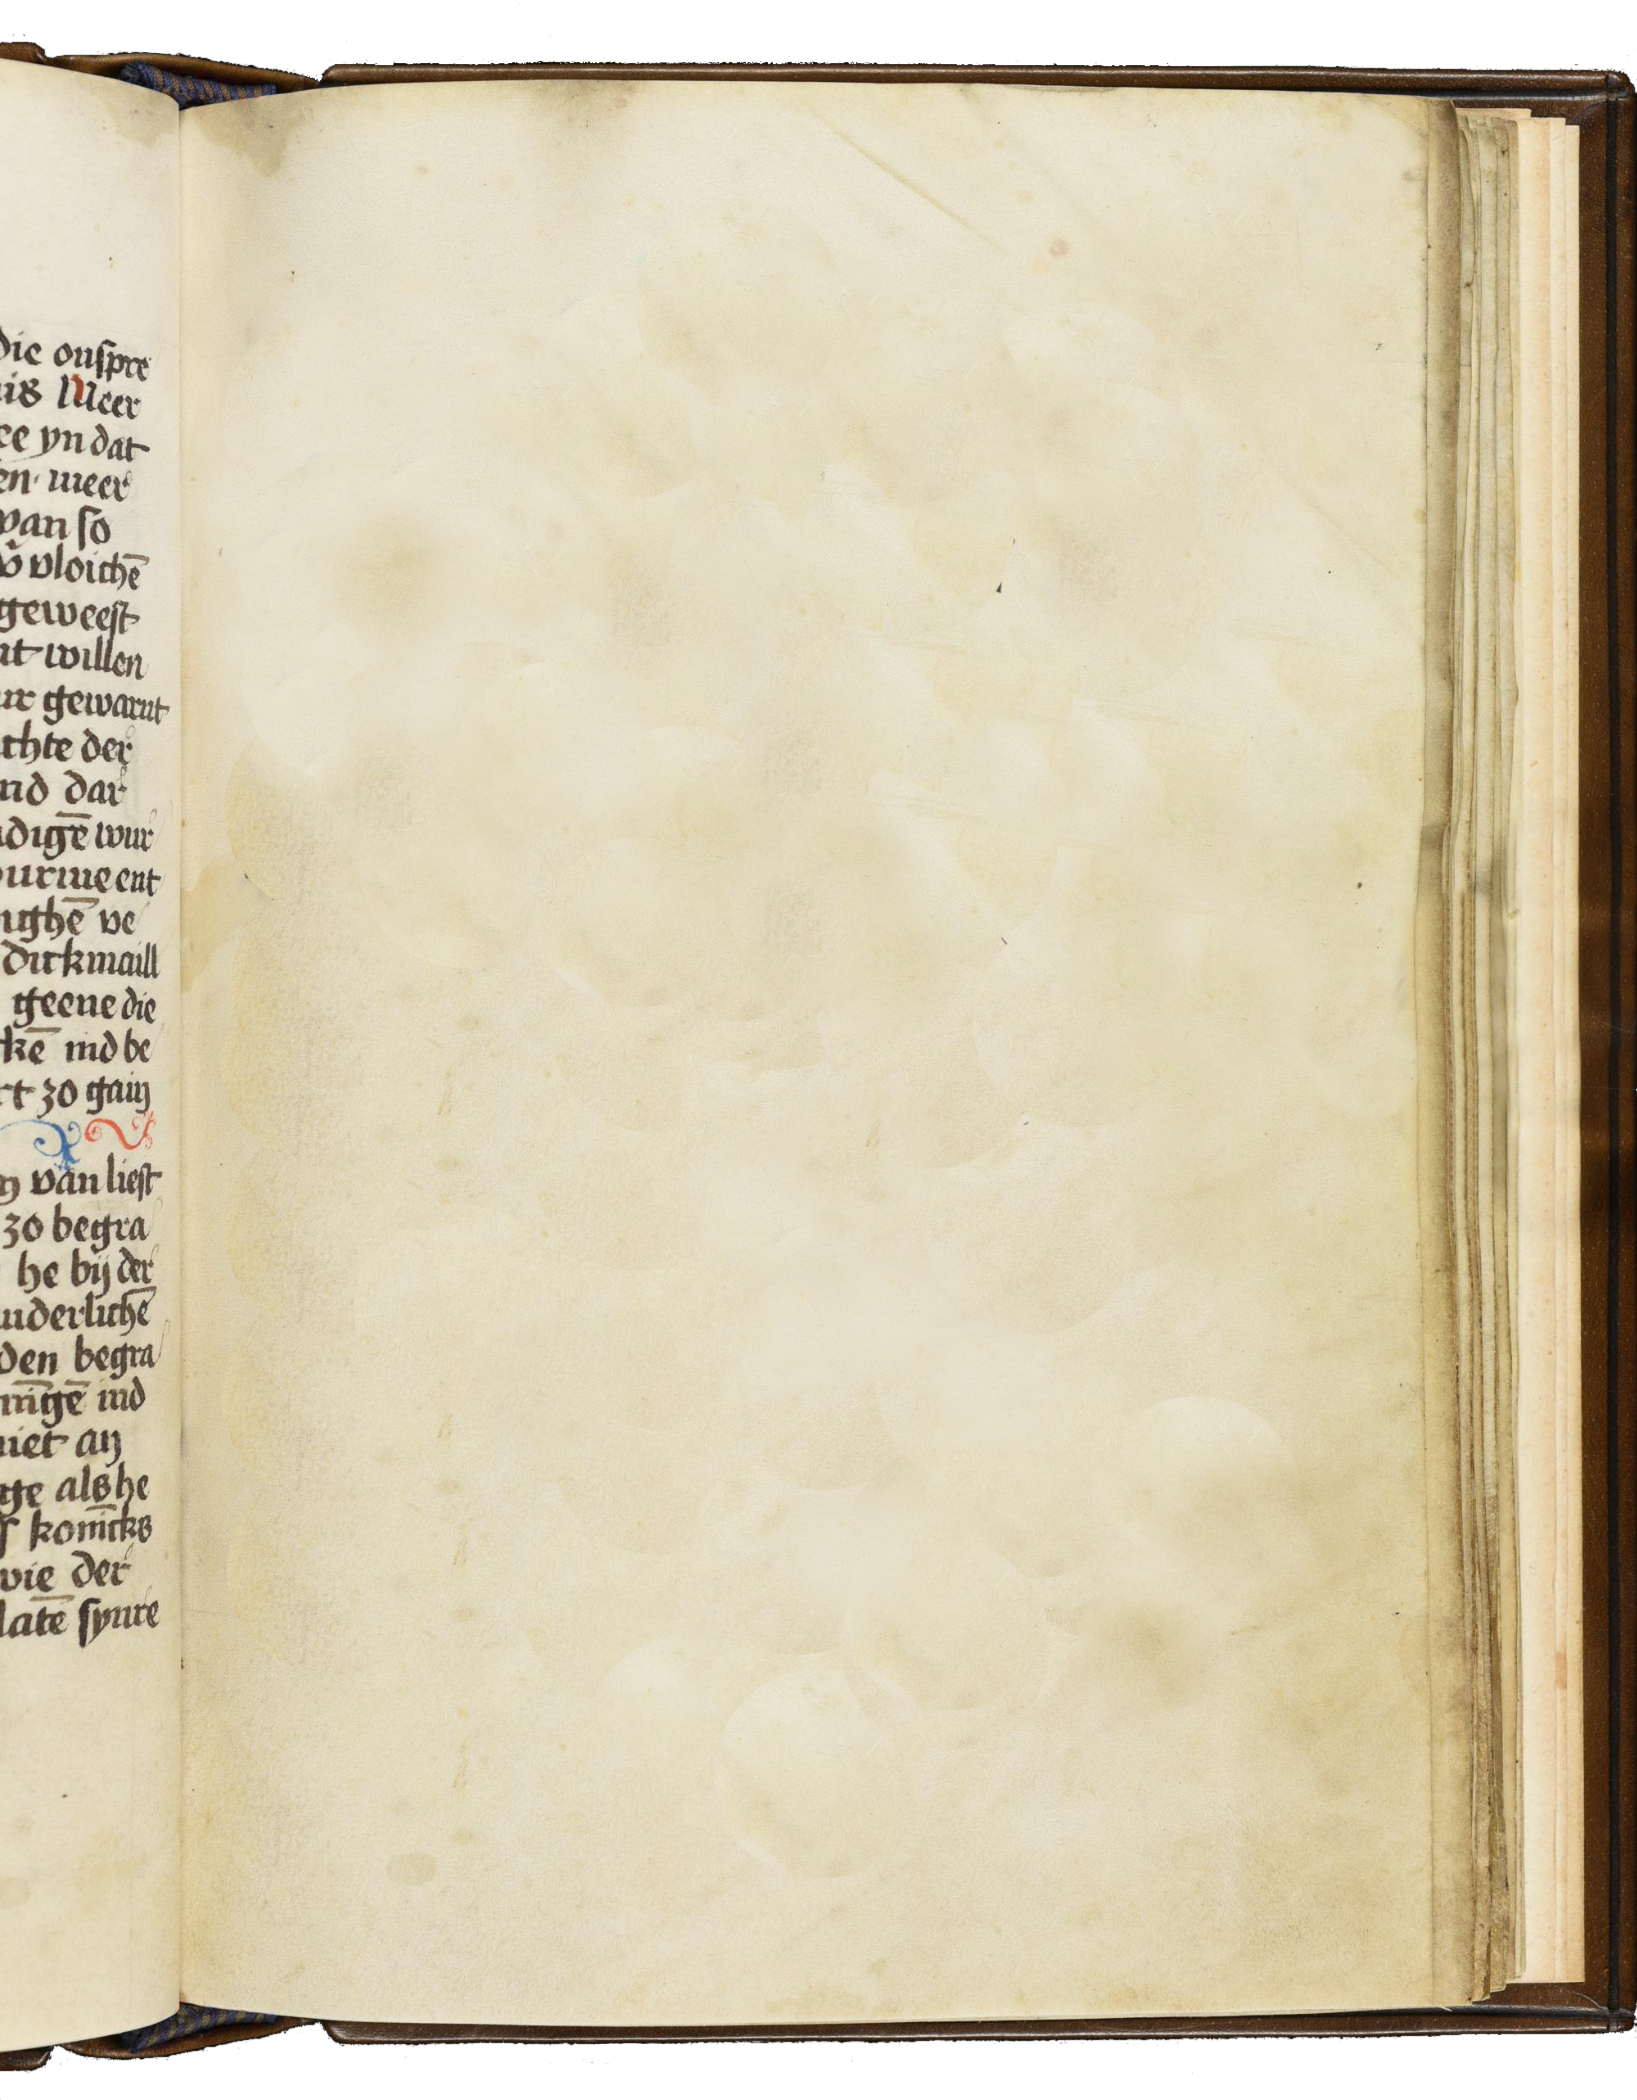 die onspre
is Meer
ee yn dat
en meer
van so
vloichē
geweest
nt willen
ur gewarnt
chte der
nd dar
digē wur
urmeent
ughē ve
dickmaill
geene die
kē ind be
rt zo gain
van liest
zo begra
he bij der
nderlichē
den begra
ingē ind
niet an
ge als he
konīcks
wie der
latē synre